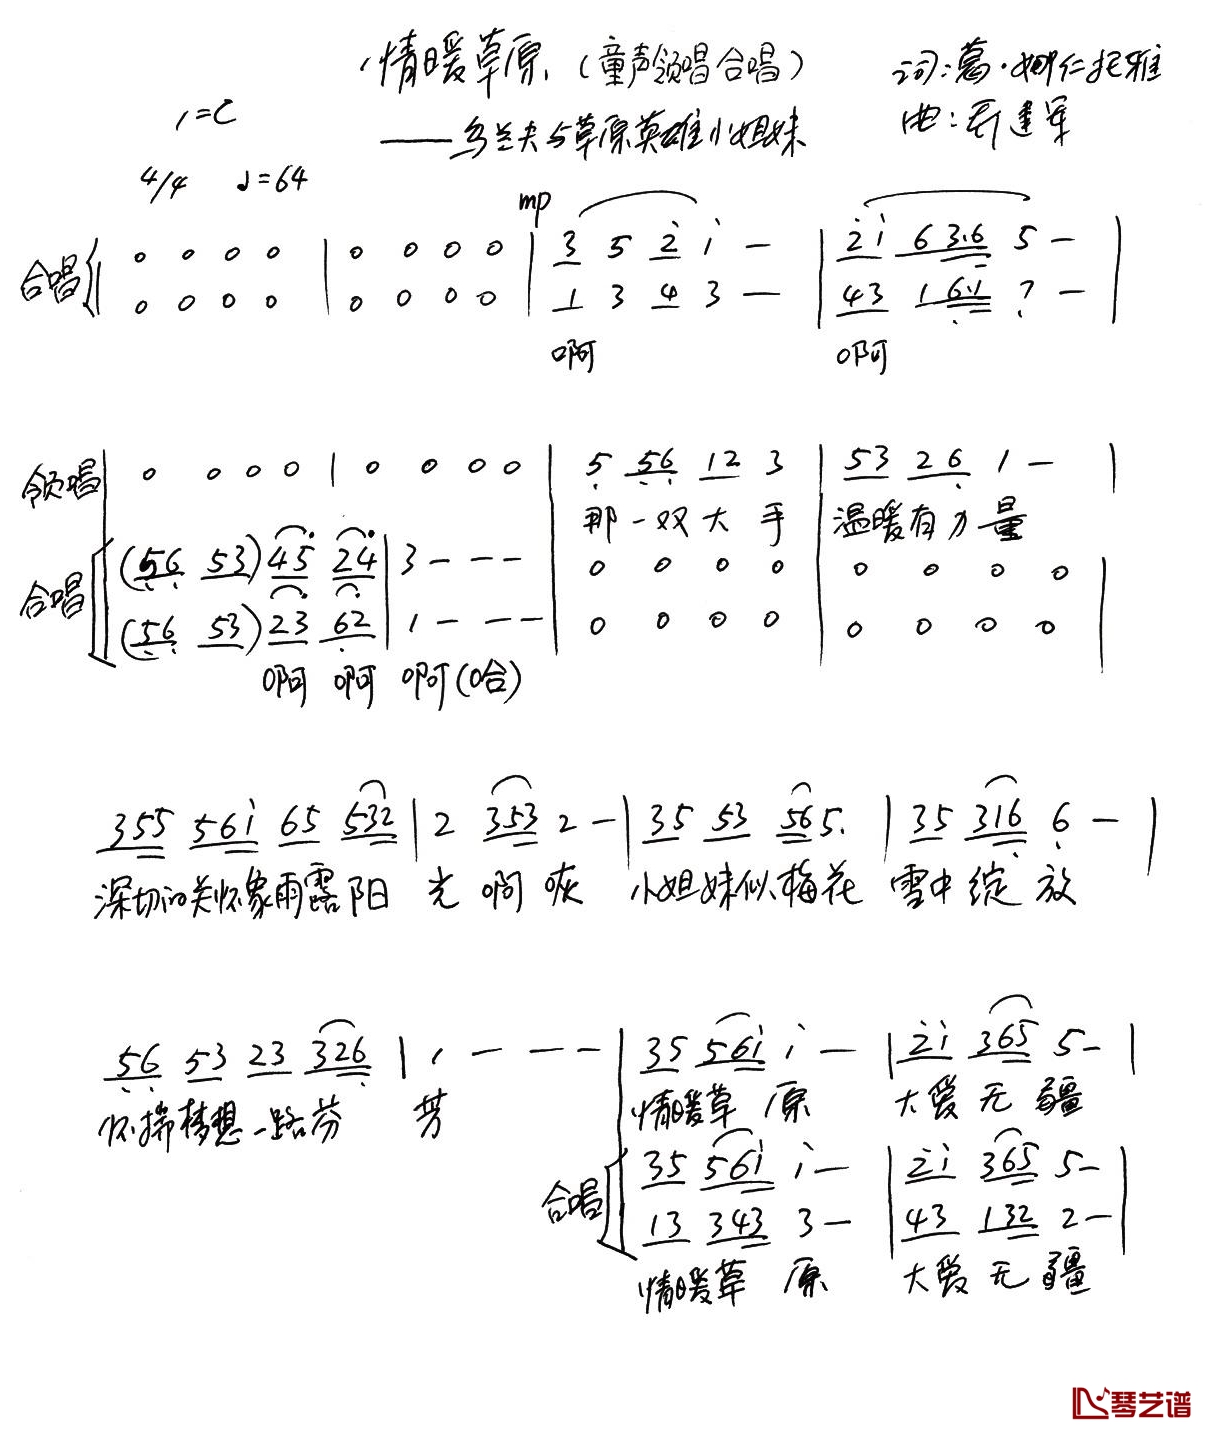 情暖草原（童声领唱合唱） 词：葛·娜仁托雅
1=C ——乌兰夫与草原英雄小姐妹 曲：乔建军
4/4 ♩=64
mp
合唱 0 0 0 0 | 0 0 0 0 | 3 5 2̇ 1̇ — | 2̇1̇ 63.6 5 — |
0 0 0 0 | 0 0 0 0 | 1 3 4 3 — | 43 16̣.1 7̣ — |
啊 啊
领唱 0 0 0 0 | 0 0 0 0 | 5̣ 5̣6̣ 12 3 | 53 26̣ 1 — |
那一双大手 温暖有力量
合唱 (5̣6̣ 53) 45 24 | 3 - - - | 0 0 0 0 | 0 0 0 0 |
(5̣6̣ 53) 23 6̣2 | 1 - - - | 0 0 0 0 | 0 0 0 0 |
啊 啊 啊(哈)
355 561̇ 65 532 | 2 353 2 — | 35 53 56 5. | 35 316̣ 6̣ — |
深切的关怀象雨露阳 光 啊 咴 小姐妹似梅花 雪中绽 放
5̣6̣ 53 23 326̣ | 1 — — — | 35 561̇ 1̇ — | 2̇1̇ 365 5 — |
怀揣梦想一路芬 芳 情暖草 原 大爱无 疆
合唱 35 561̇ 1̇ — | 2̇1̇ 365 5 — |
13 343 3 — | 43 132 2 — |
情暖草 原 大爱无 疆
琴艺谱